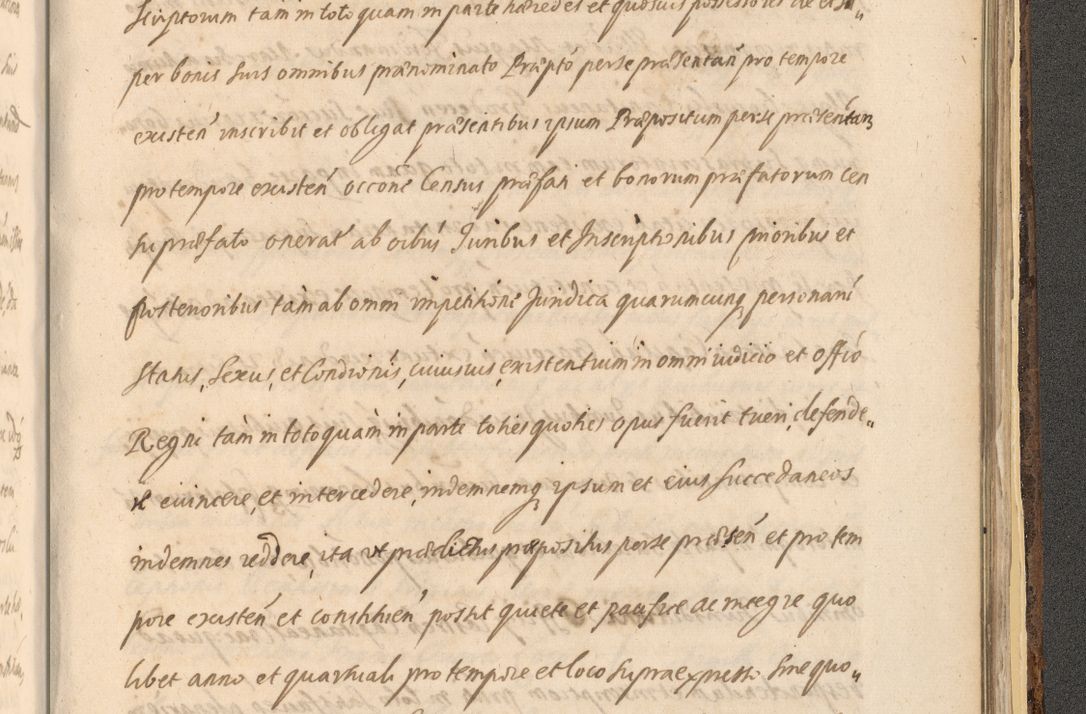 scriptorum tam in toto quam in parte hæredes et quosvis possessores de et su„
per bonis suis omnibus prænominato Præpto per se præsentañ pro tempore
existeñ inscribit et obligat præsentibus ipsum Præpositum per se præsentam
pro tempore existeñ occone Census præfati et bonorum præfatorum cen
su præfato onerat̃ ab oibus Juribus et Inscriptionibus prioribus et
posterioribus tam ab omni impetitione Juridica quarumcunq personarũ
status, sexus, et Condionis, cuiusvis, existentium in omni iudicio et offio
Regni tam in toto quàm in parte toties quoties opus fuerit tueri, defende„
re evincere, et intercedere, indemnemq ipsum et eius succedaneos
indemnes reddere, ita ut prædictus præpositus per se præseñ et pro tem
pore existeñ et constitueñ possit quiete et pacifice ac integre quo
libet anno et quartuali pro tempore et loco supra expresso sine quo„